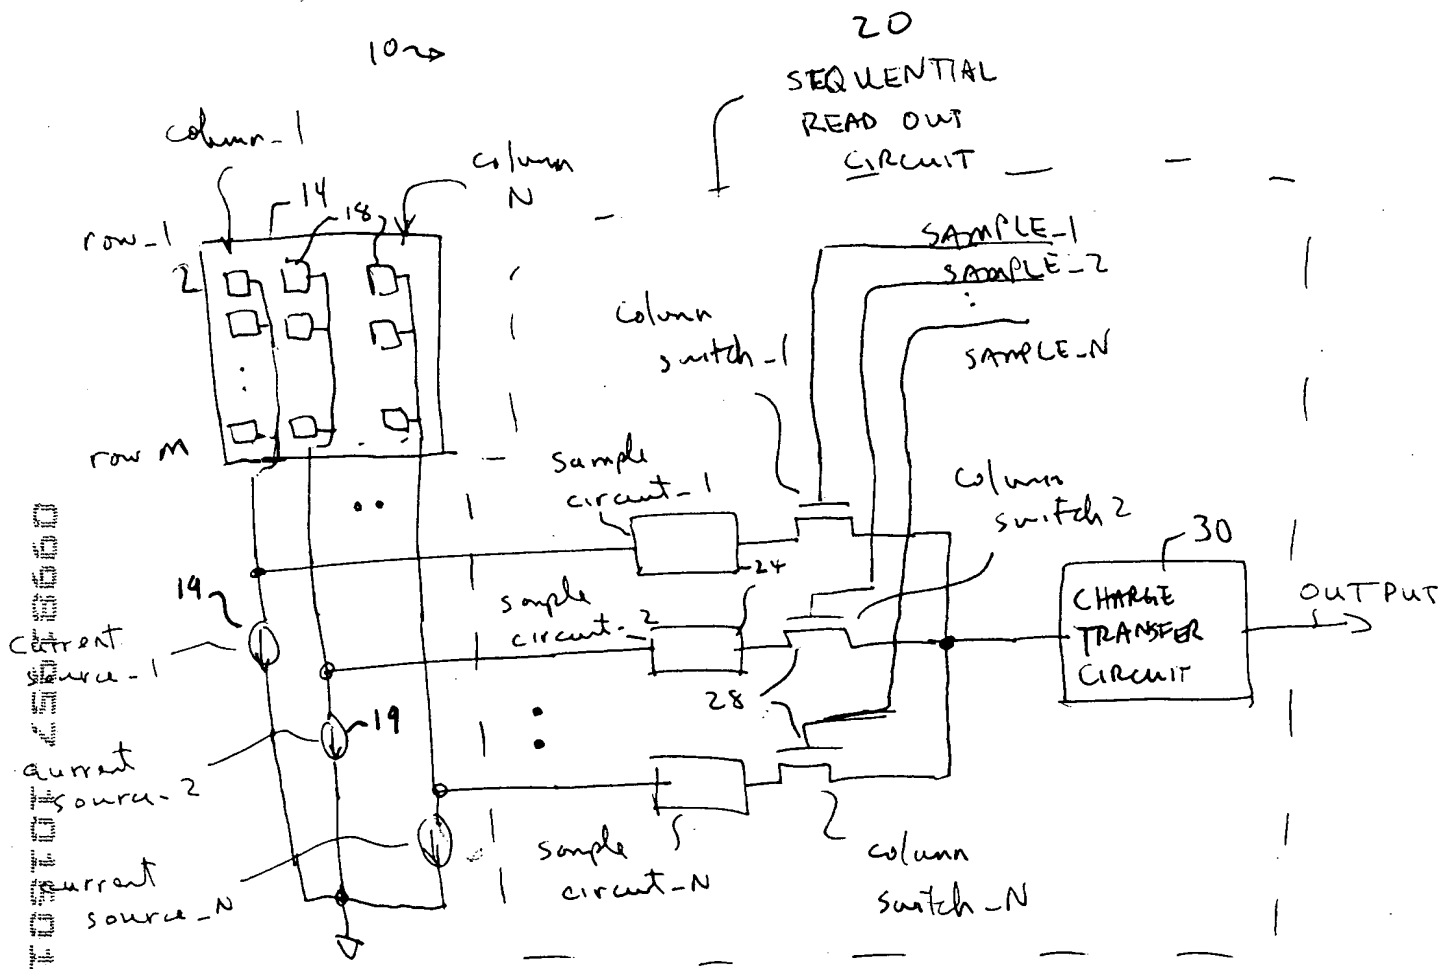 20
10
SEQUENTIAL
READ OUT
CIRCUIT
column_1
column
N
14
18
row_1
2
row M
SAMPLE_1
SAMPLE_2
:
SAMPLE_N
column
switch_1
sample
circuit_1
column
switch 2
24
30
CHARGE
TRANSFER
CIRCUIT
OUTPUT
19
current
source_1
sample
circuit_2
28
19
current
source_2
current
source_N
sample
circuit_N
column
switch_N